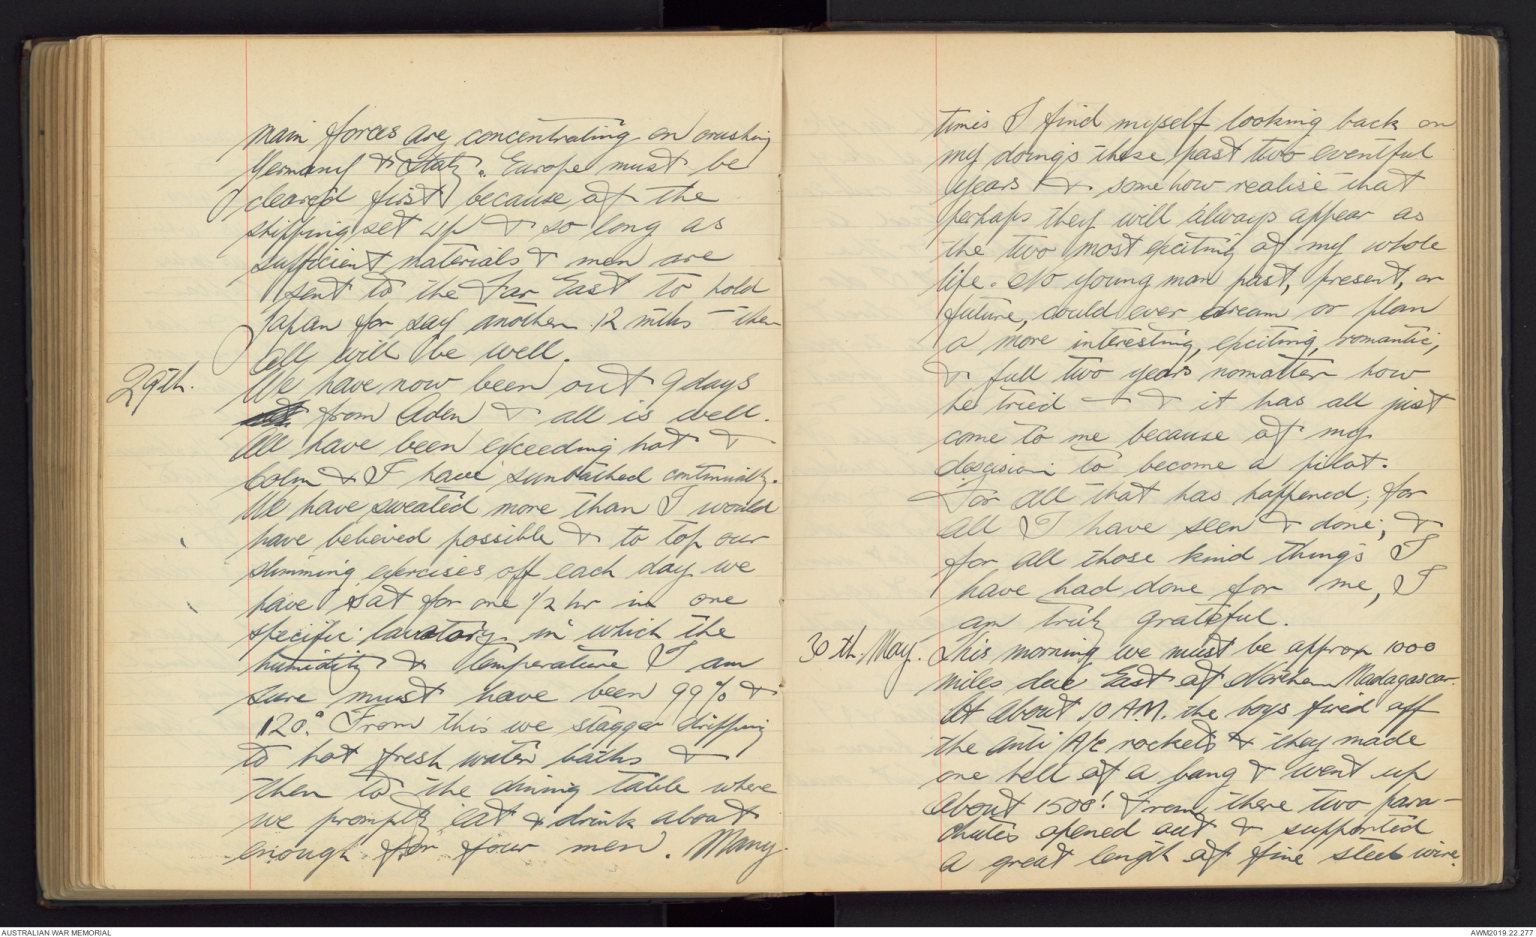 main forces are concentrating on crushing
Germany & Italy. Europe must be
cleared first because of the
shipping set up & so long as
sufficient materials & men are
sent to the Far East to hold
Japan for say another 12 mths — then
all will be well.
29th. We have now been out 9 days
from Aden & all is well.
All have been exceeding hot &
Colin & I have sunbathed continually.
We have sweated more than I would
have believed possible & to top our
slimming exercises off each day we
have sat for one 1/2 hr in one
specific lavatory in which the
humidity & temperature I am
sure must have been 99% &
120°. From this we stagger dripping
to hot fresh water baths &
then to the dining table where
we promptly eat & drink about
enough for four men. Many
times I find myself looking back on
my doings these past two eventful
years & somehow realise that
perhaps they will always appear as
the two most exciting of my whole
life. No young man past, present, or
future, could ever dream or plan
a more interesting, exciting, romantic,
& full two years nomatter how
he tried — & it has all just
come to me because of my
descision to become a pilot.
For all that has happened; for
all I have seen & done; &
for all those kind things I
have had done for me, I
am truly grateful.
30th. May. This morning we must be approx 1000
miles due East of Northern Madagascar.
At about 10 AM. the boys fired off
the anti A/c rockets & they made
one hell of a bang & went up
about 1500'. From there two para-
chutes opened out & supported
a great length of fine steel wire.
AUSTRALIAN WAR MEMORIAL
AWM2019.22.277